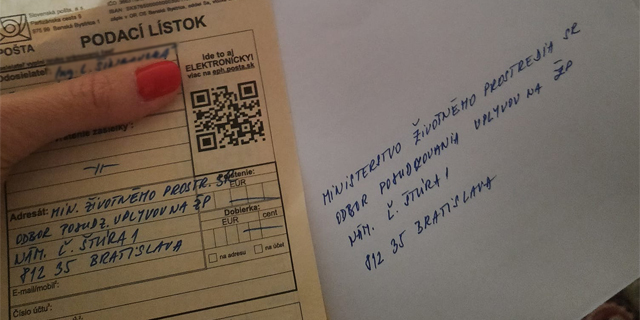 Slovenská pošta, a. s.
Partizánska cesta 9
975 99 Banská Bystrica 1
POŠTA
PODACÍ LÍSTOK
Ide to aj
ELEKTRONICKY!
viac na eph.posta.sk
Odosielateľ:
Adresát: MIN. ŽIVOTNÉHO PROSTR. SR
ODBOR POSUDZ. VPLYVOV NA ŽP
NÁM. Ľ. ŠTÚRA 1
812 35 BRATISLAVA
EUR
Dobierka:
EUR cent
na adresu na účet
E-mail/mobil:
Číslo účtu:
MINISTERSTVO ŽIVOTNÉHO PROSTREDIA SR
ODBOR POSUDZOVANIA VPLYVOV NA ŽP
NÁM. Ľ. ŠTÚRA 1
812 35 BRATISLAVA